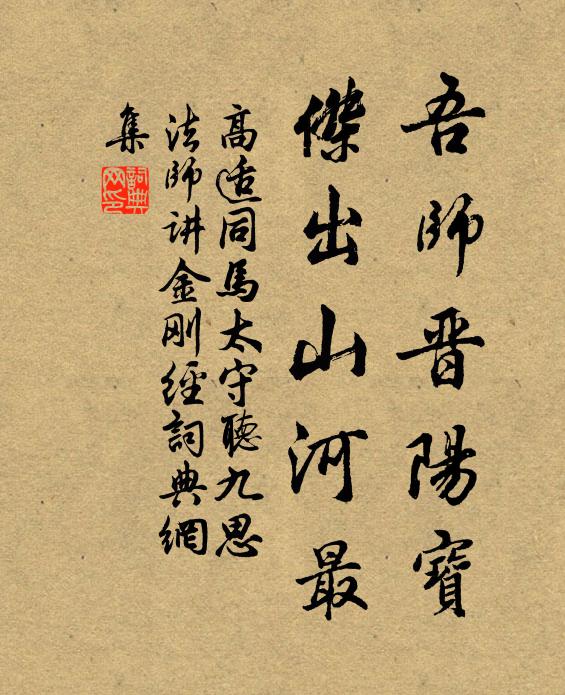 吾師晋陽寶
傑出山河最
高适同馬太守聽九思
法師讲金刚經詞典網
集
詞典网印